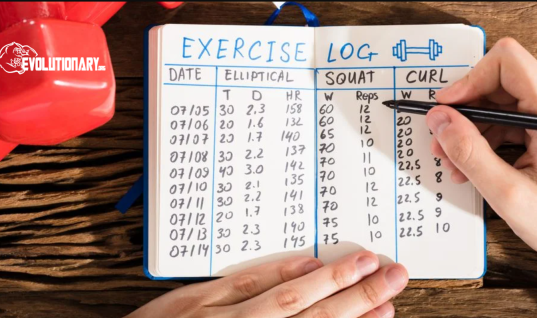 EVOLUTIONARY.ORG
EXERCISE LOG
DATE ELLIPTICAL SQUAT CURL
T D HR W Reps W R
07/05 30 2,3 158 60 12
07/06 20 1.6 132 60 12 20
07/07 20 1.7 140 65 12 20
07/08 30 2.2 137 70 10 20
07/09 40 3.0 142 70 11 22,5 8
07/10 30 2.1 135 70 12 22.5 8
07/11 30 2.2 141 70 12 22.5 9
07/12 20 1.7 138 75 10 22.5 9
07/13 30 2.3 140 75 10 22.5 10
07/14 30 2.3 145